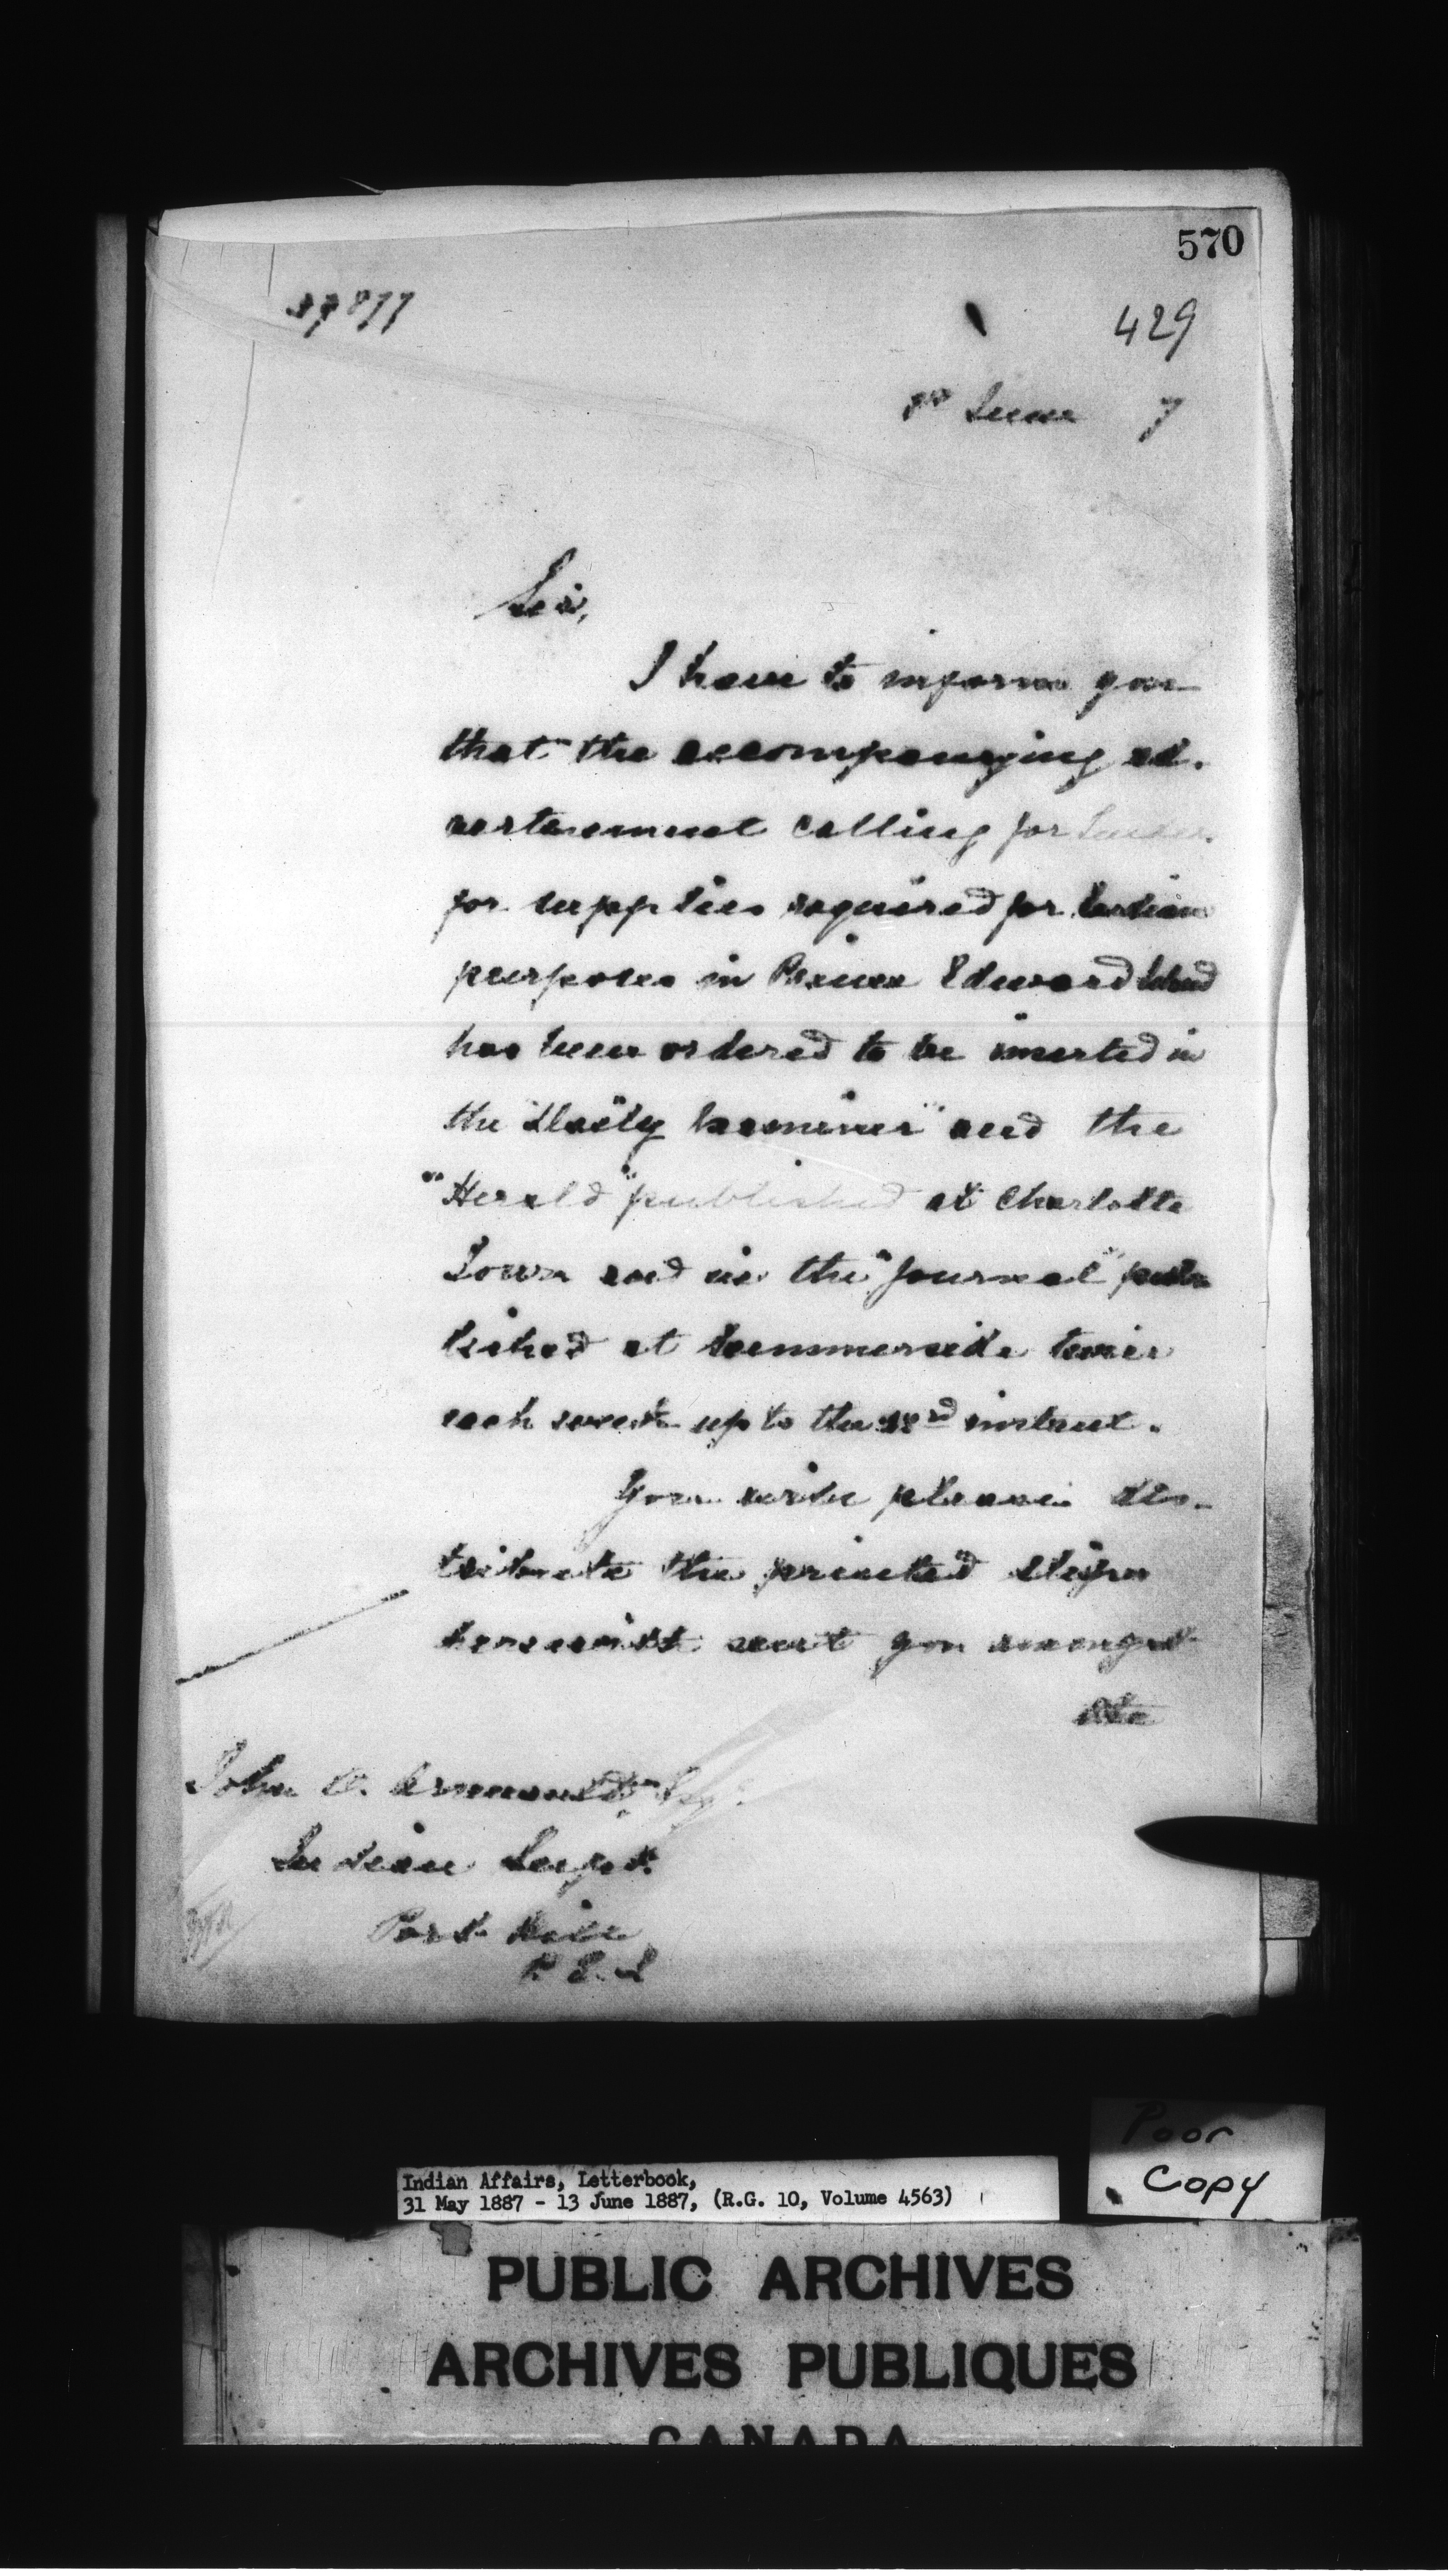 570
429
June 7
Sir,
I have to inform you
that the accompanying ad-
vertisement calling for Tenders
for supplies required for Indian
purposes in Prince Edward Island
has been ordered to be inserted in
the "Daily Examiner" and the
"Herald" published at Charlotte
Town and in the "Journal" pub
lished at Summerside twice
each week up to the instant.
You will please dis-
tribute the printed slips
herewith sent you amongst
the
John O. Arsenault, Esq.
Indian Supt.
Port Hill
P. E. I.
Poor
Copy
Indian Affairs, Letterbook,
31 May 1887 - 13 June 1887, (R.G. 10, Volume 4563)
PUBLIC ARCHIVES
ARCHIVES PUBLIQUES
CANADA